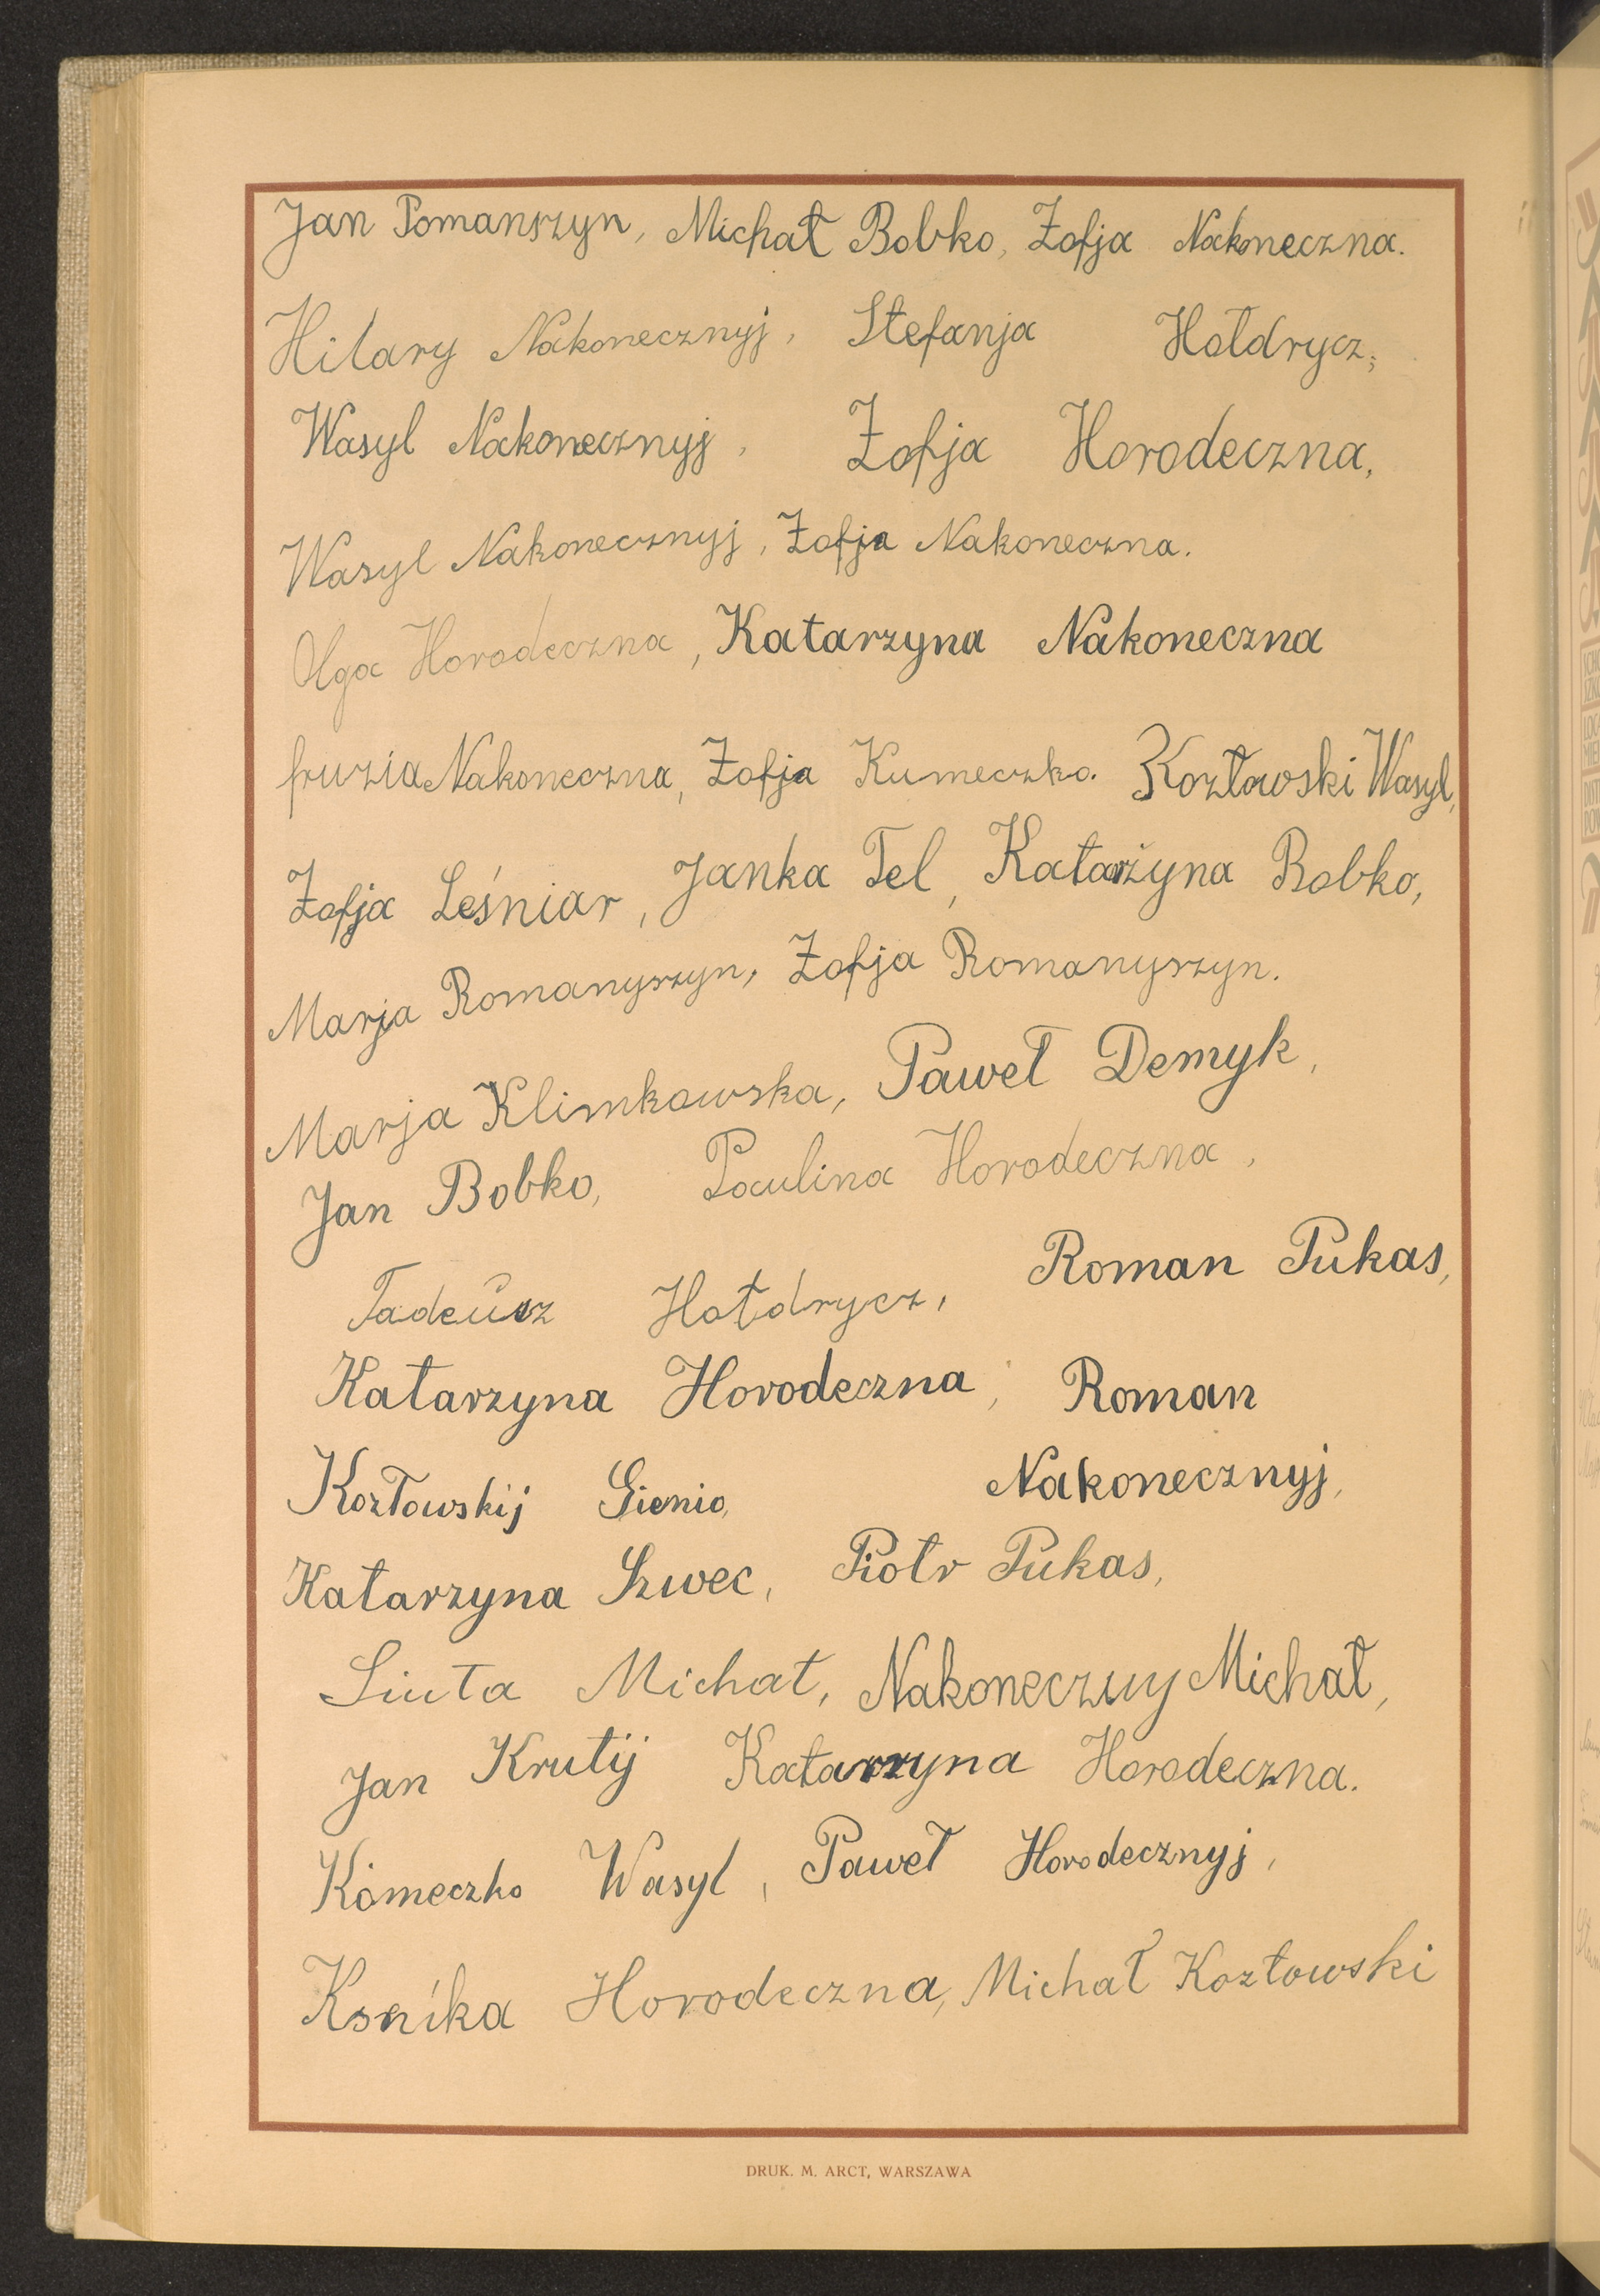 Jan Pomanszyn, Michał Bobko, Zofja Nakoneczna.
Hilary Nakonecznyj, Stefanja Hołdrycz;
Wasyl Nakonecznyj, Zofja Horodeczna,
Wasyl Nakonecznyj, Zofja Nakoneczna.
Olga Horodeczna, Katarzyna Nakoneczna
fruzia Nakoneczna, Zofja Kumeczko. Kozłowski Wasyl,
Zofja Leśniar, Janka Tel, Katarżyna Bobko,
Marja Romanyszyn, Zofja Romanyszyn.
Marja Klimkowska, Paweł Demyk,
Jan Bobko, Paulina Horodeczna,
Tadeusz Hołdrycz, Roman Pukas,
Katarzyna Horodeczna, Roman
Kozłowskij Gienio, Nakonecznyj,
Katarzyna Szwec, Piotr Pukas,
Siuta Michał, Nakoneczny Michał,
Jan Krutij Katarzyna Horodeczna.
Komeczko Wasyl, Paweł Horodecznyj,
Ksenika Horodeczna, Michał Kozłowski
DRUK. M. ARCT, WARSZAWA